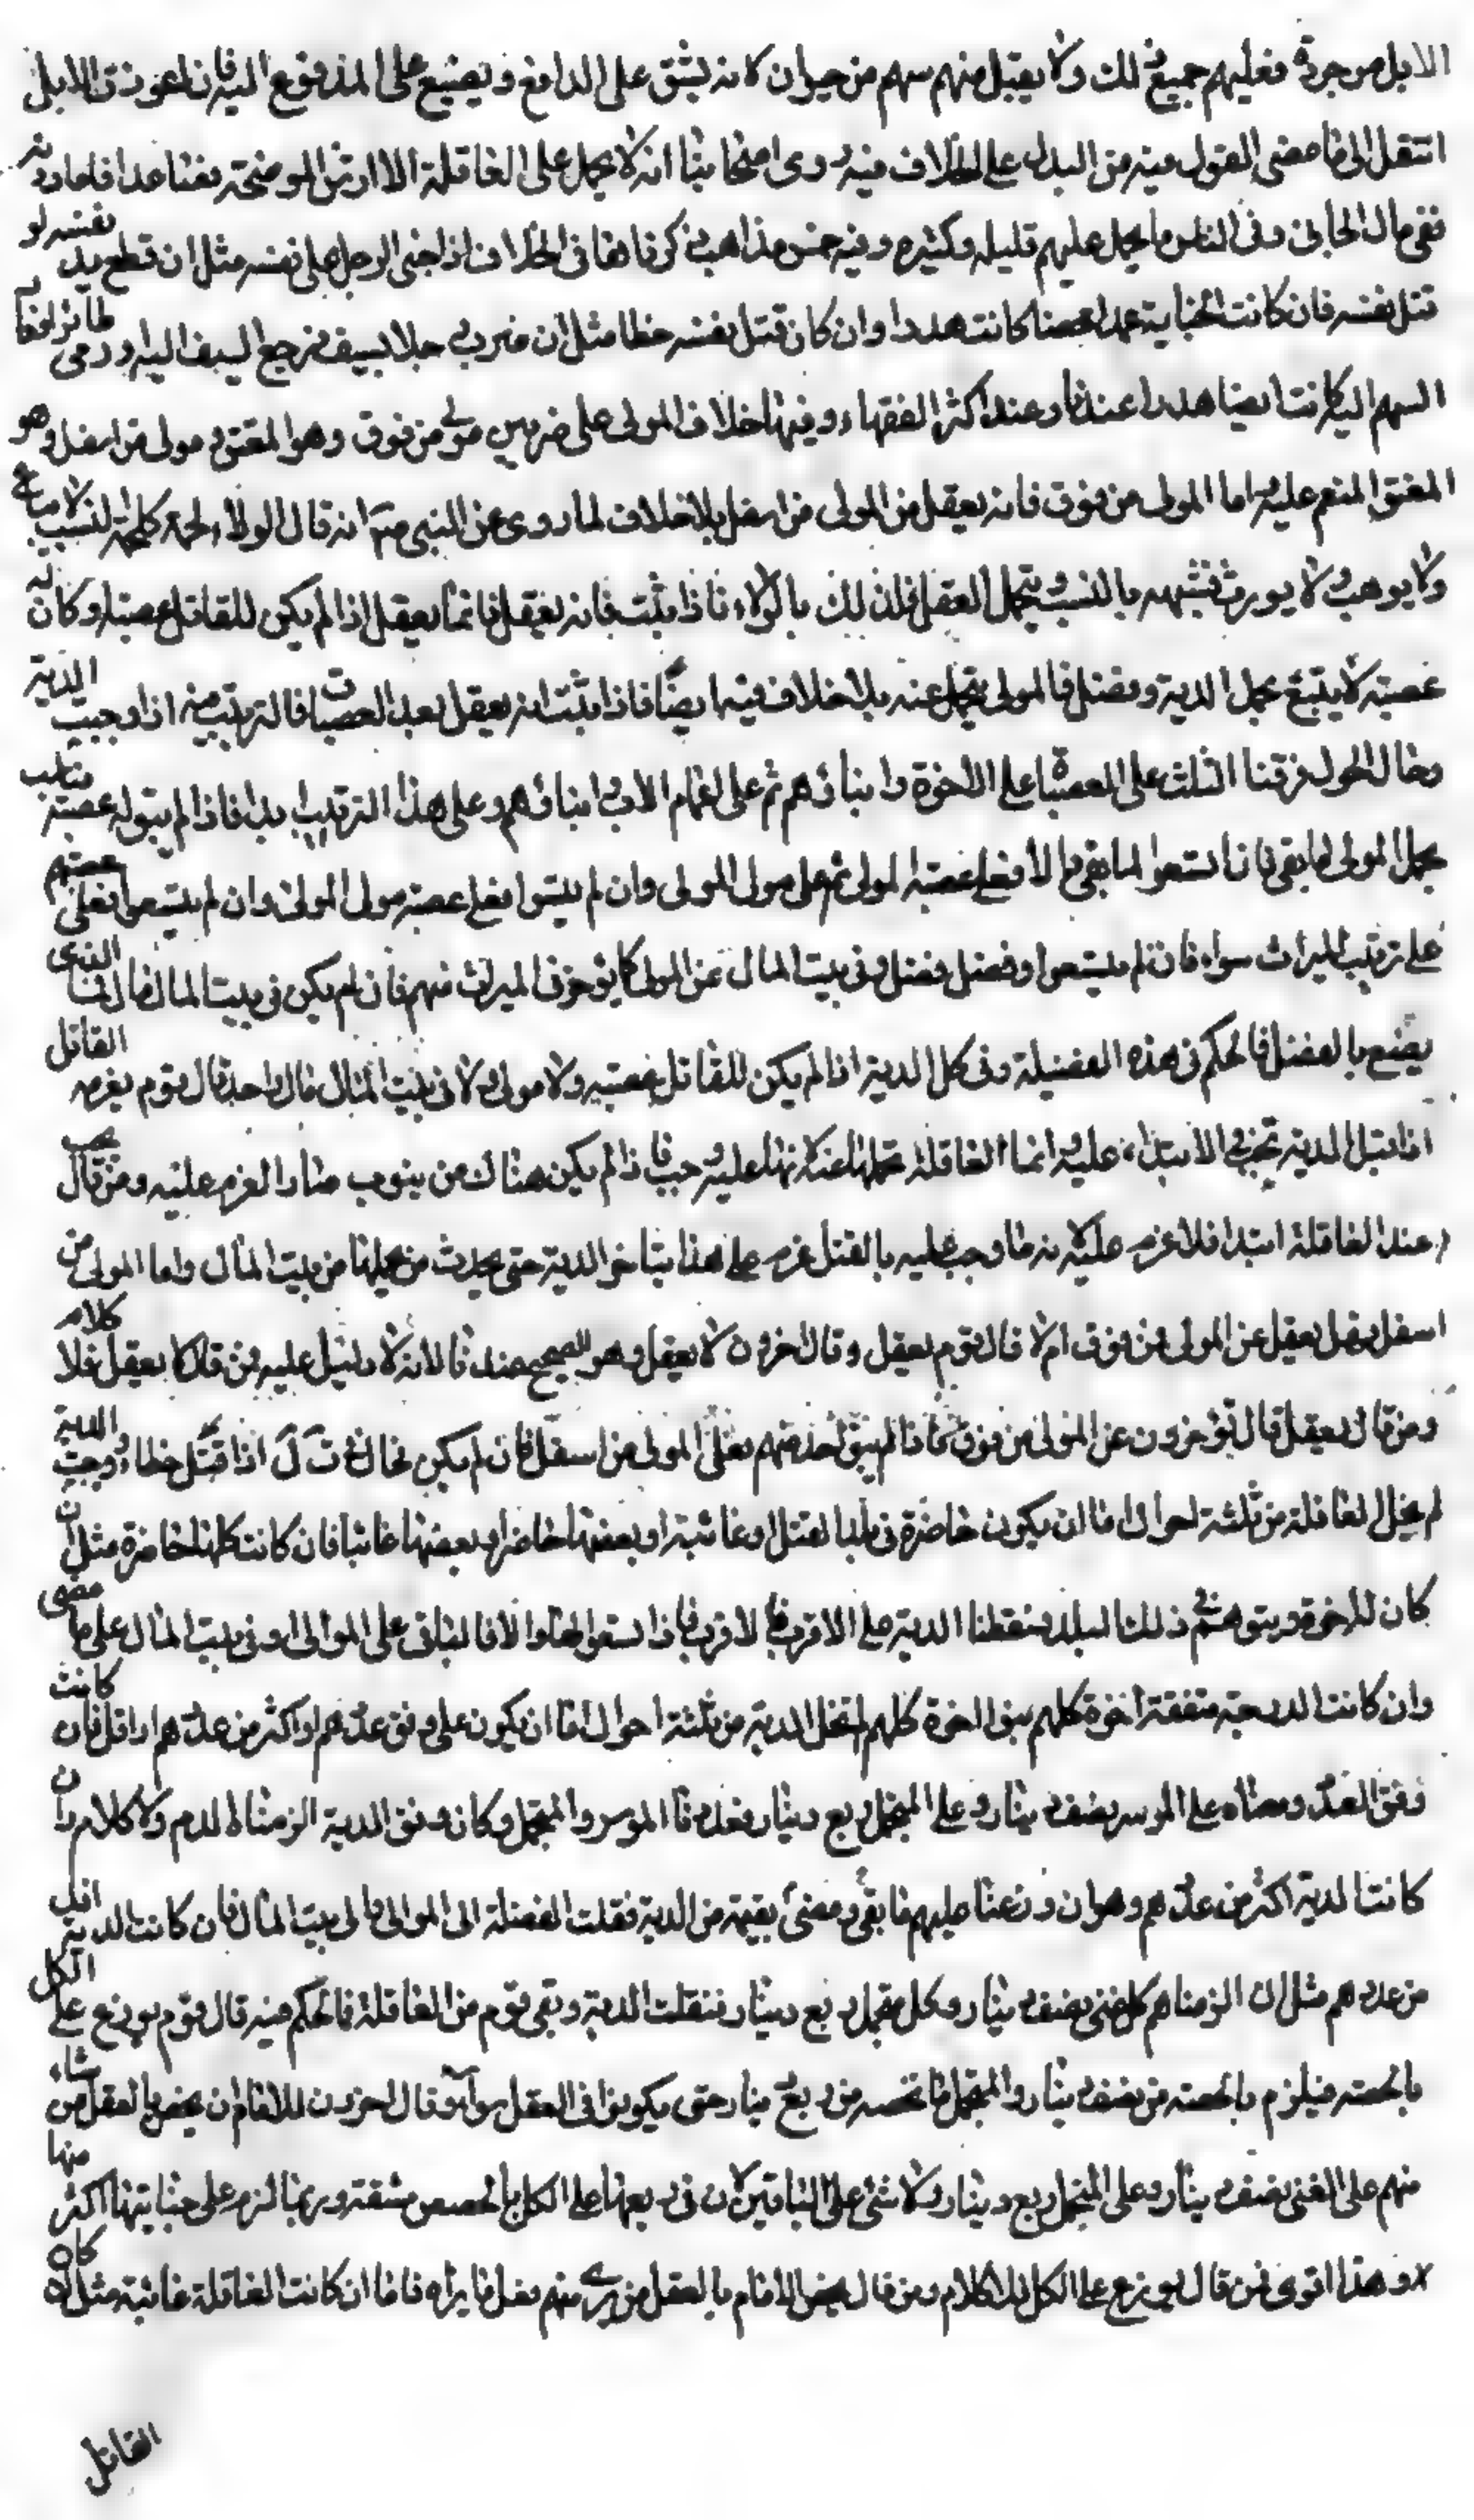 الابل موجودة فعليهم جميع ذلك ولا يقبل منهم سهم من حيوان لانه يشق على الدافع ويضيع على المدفوع اليه فان اعوزت الابل
انتقل الى ما مضى القول فيه من البدل على الخلاف فيه وروى اصحابنا انه لا يحمل على العاقلة الا ارش الموضحة فصاعدا فاما دونه
ففى مال الجانى وفى الناس ما يحمل عليهم قليله وكثيره وفيه خمس مذاهب ذكرناها فى الخلاف اذا جنى الرجل على نفسه مثل ان قطع يد نفسه او
قتل نفسه فان كانت الجناية عمدا محضا كانت هدرا وان كان قتل نفسه خطا مثل ان ضرب رجلا بسيف فرجع السيف اليه او رمى طائرا فعاد
السهم اليه كانت ايضا هدرا عندنا وعند اكثر الفقهاء وفيها خلاف المولى على ضربين مولى من فوق وهو المعتق ومولى من اسفل وهو
المعتق المنعم عليه اما المولى من فوق فانه يعقل من المولى من اسفل بلا خلاف لما روى عن النبى ص انه قال الولاء لحمة كلحمة النسب لا يباع
ولا يوهب ولا يورث فشبهه بالنسب والنسب يتحمل العقل فكذلك بالولاء فاذا ثبت فانه يعقل فانما يعقل اذا لم يكن للقاتل عصبة او كان له
عصبة لا يتسع لحمل الدية وفضل فالمولى يتحمل عنه بلا خلاف فيه ايضا فاذا ثبت انه يعقل بعد العصبات فالترتيب فيه اذا وجبت الدية
وحال الحول فرقنا الثلث على العصبات على الاخوة وابنائهم ثم على الاعمام الاب وابنائهم وعلى هذا الترتيب ابدا فاذا لم يبق له عصبة مناسب
يحمل المولى ما بقى فان اتسعوا لما بقى والا فعلى عصبة المولى ثم على مولى المولى وان لم يتسعوا فعلى عصبة مولى المولى وان لم يتسعوا فعلى عصبتهم
على ترتيب الميراث سواء فان لم يتسعوا وفضل فضل ففى بيت المال عن المولى كما يوخذ الميراث منهم فان لم يكن فى بيت المال مال فما الذى
يصنع بالفضل فالحكم فى هذه الفضيلة وفى كل الدية اذا لم يكن للقاتل عصبة ولا مولى ولا فى بيت المال مال واحد قال قوم يغرمه القاتل
اذا قيل الدية تجب فى الابتداء عليه وانما العاقلة تحملها عنه لانها عليه وجبت فاذا لم يكن هناك من ينوب عنه دار الغرم عليه ومن قال يجب
عند العاقلة ابتداء فلا غرم عليه لانه ما وجب عليه بالقتل غرم على هذا يتاخر الدية حتى يحدث من يحملها من بيت المال واما المولى من
اسفل فهل يعقل عن المولى من فوق ام لا قال قوم يعقل وقال اخرون لا يعقل وهو الصحيح عندنا لانه لا دليل عليه فمن قال لا يعقل فلا كلام
ومن قال يعقل قال يوخرون عن المولى من فوق فاذا لم يبق احد منهم فعلى المولى من اسفل فان لم يكن اذا قتل خطاء ووجبت الدية
لم يخل العاقلة من ثلثة احوال اما ان يكون حاضرة فى بلد القتل او غائبة او بعضها حاضرا وبعضها غائبا فان كانت كلها حاضرة مثل ان
كان للاخوة وبنوهم فى ذلك البلد سقطنا الدية على الاقرب فالاقرب فاذا اتسعوا لها والا فالباقى على الموالى او فى بيت المال على ما مضى
وان كانت الدرجة متفقة اخوة كلهم بنو اخوة كلهم لم تخل الدية من ثلثة احوال اما ان يكون على وفق عددهم او اكثر من عددهم او اقل فان كانت
وفق العدد ومعناه على الموسر نصف دينار وعلى المتجمل ربع دينار فعددنا الموسر والمتجمل وكان وفق الدية الزمناه الدم ولا كلام وان
كانت الدية اكثر من عددهم وهو ان وزعنا عليهم ما بقى ومضى بقية من الدية نقلت الفضلة الى الموالى والى بيت المال فان كانت الدية اقل
من عددهم مثل ان الزمناهم كل غنى نصف دينار وكل متجمل ربع دينار فنقلت الدية وبقى قوم من العاقلة فما الحكم فيه قال قوم يوزع على الكل
بالحصة فيلزم بالحصة من نصف دينار والمتجمل ما نحصه من ربع دينار حتى يكونوا فى العقل سواء وقال اخرون للامام ان يخص بالعقل من شاء
منهم على الغنى نصف دينار وعلى المتجمل ربع دينار ولا شئ على الباقين لان فى توزيعها على الكل بالحصص مشقة وربما لزم على جنايتها اكثر منها
وهذا اقوى فمن قال يوزع على الكل فلا كلام ومن قال يخص الامام بالعقل من يرى منهم فعل ما يراه فاما ان كانت العاقلة غائبة مثل ان كان
القاتل